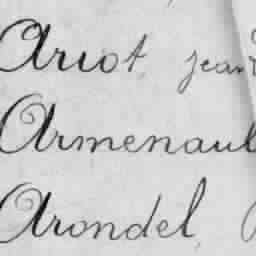 Ariot, jean
Armenaul
Arondel,